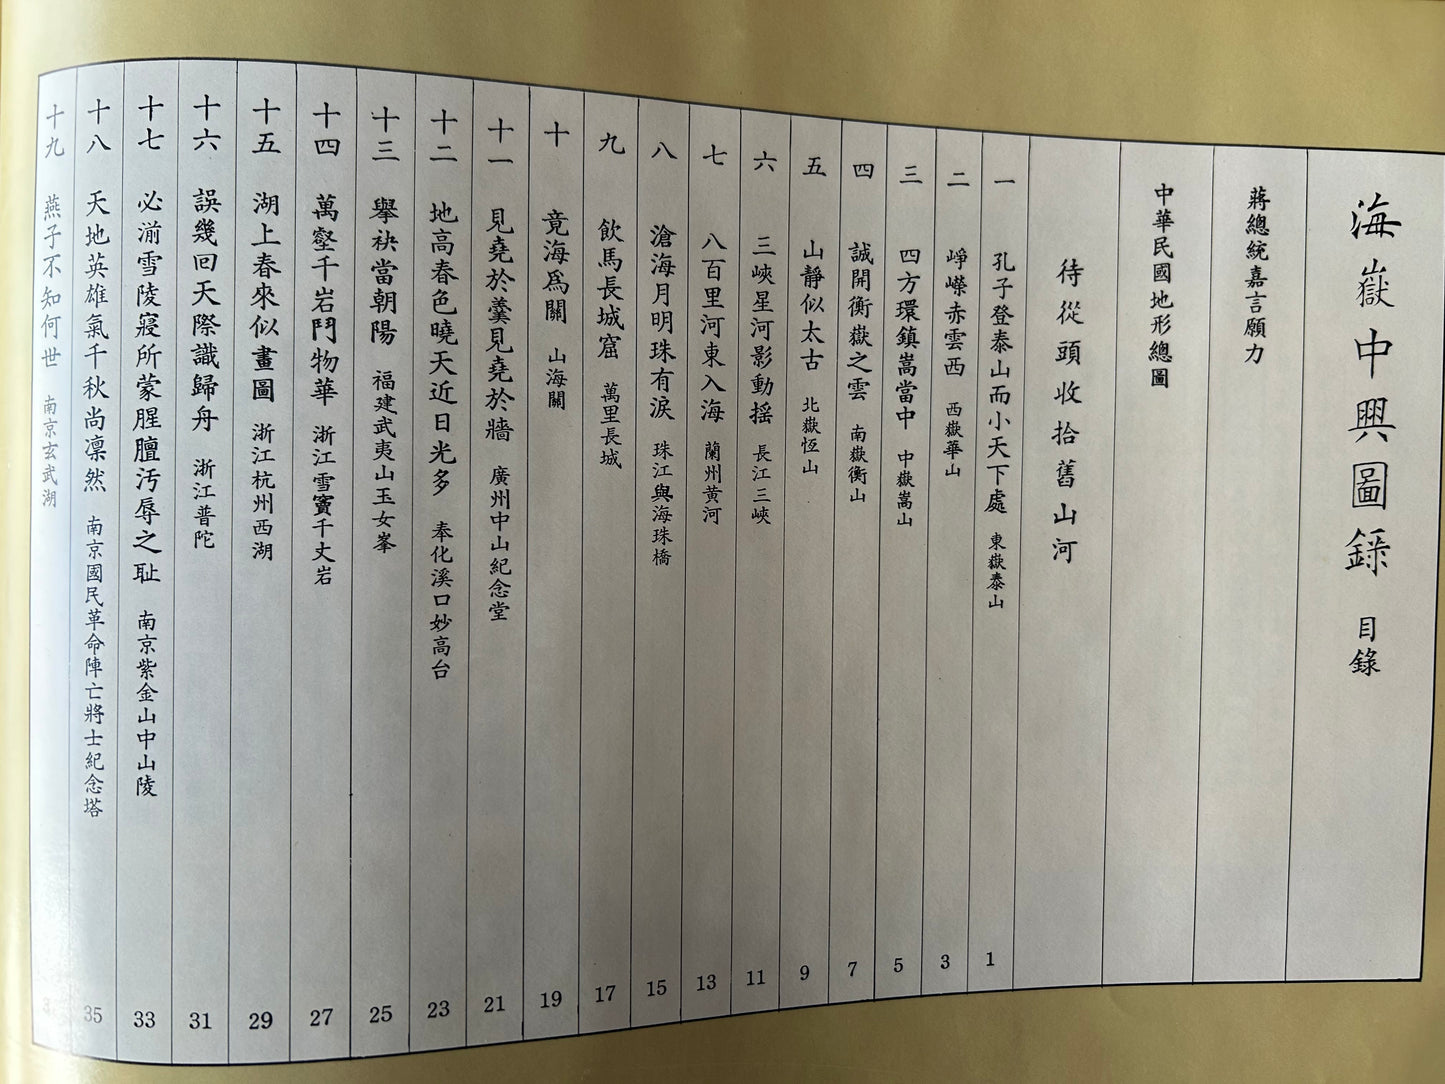 海嶽中興圖錄 目錄
蔣總統嘉言願力
中華民國地形總圖
待從頭收拾舊山河
一 孔子登泰山而小天下處 東嶽泰山 1
二 崢嶸赤雲西 西嶽華山 3
三 四方環鎮嵩當中 中嶽嵩山 5
四 誠開衡嶽之雲 南嶽衡山 7
五 山靜似太古 北嶽恆山 9
六 三峽星河影動搖 長江三峽 11
七 八百里河東入海 蘭州黃河 13
八 滄海月明珠有淚 珠江與海珠橋 15
九 飲馬長城窟 萬里長城 17
十 竟海為關 山海關 19
十一 見堯於羹見堯於牆 廣州中山紀念堂 21
十二 地高春色曉天近日光多 奉化溪口妙高台 23
十三 舉袂當朝陽 福建武夷山玉女峯 25
十四 萬壑千岩鬥物華 浙江雪竇千丈岩 27
十五 湖上春來似畫圖 浙江杭州西湖 29
十六 誤幾回天際識歸舟 浙江普陀 31
十七 必湔雪陵寢所蒙腥膻污辱之恥 南京紫金山中山陵 33
十八 天地英雄氣千秋尚凛然 南京國民革命陣亡將士紀念塔 35
十九 燕子不知何世 南京玄武湖